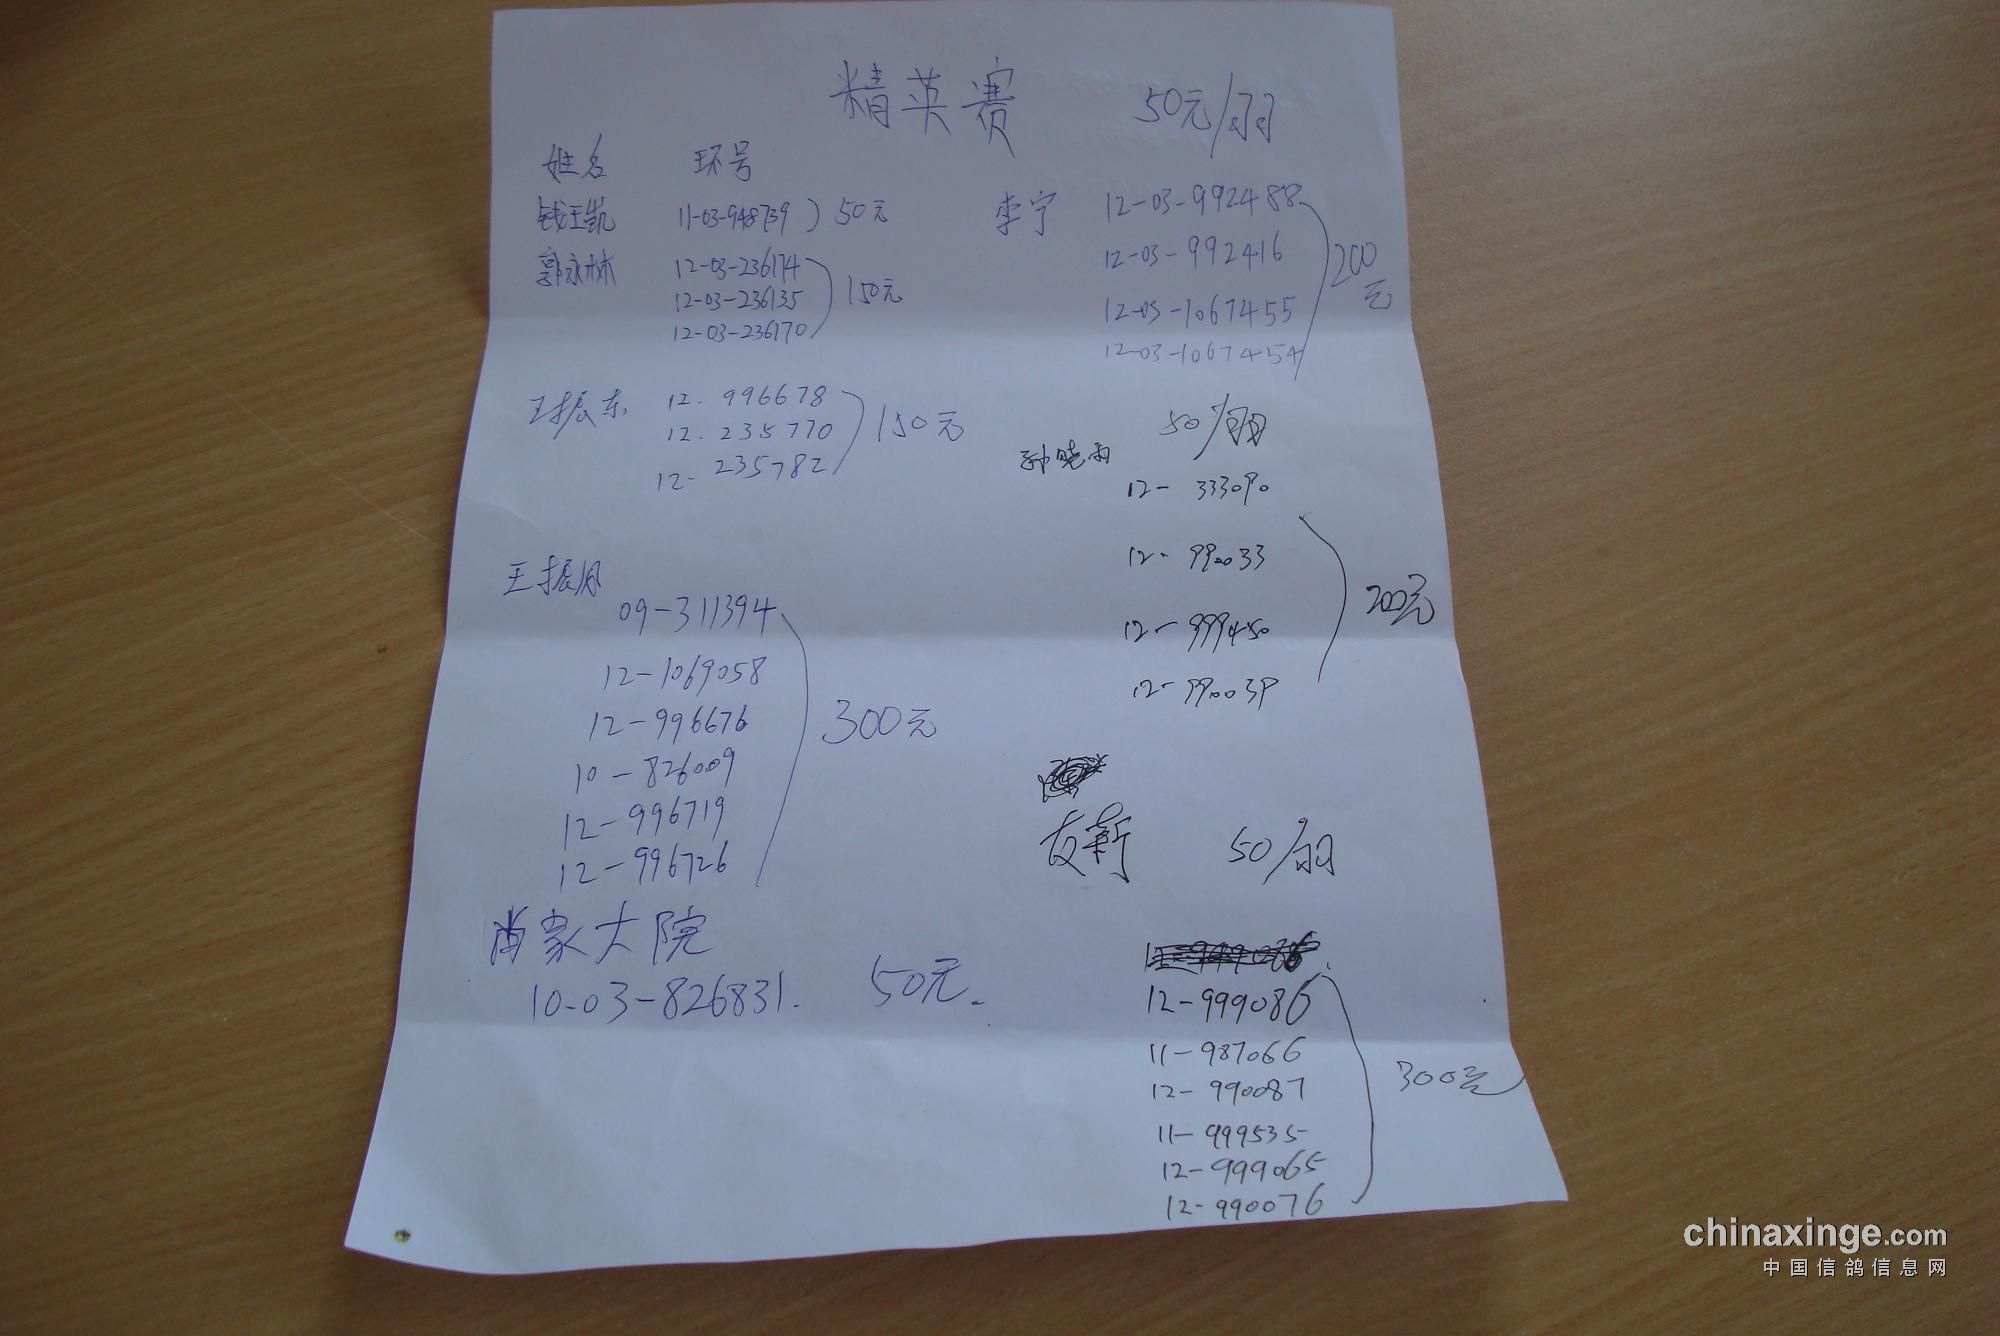 精英赛 50元/羽
姓名 环号
钱玉凯 11-03-948739 50元
郭永林 12-03-236174
12-03-236135 150元
12-03-236170
王振东 12. 996678
12. 235770 150元
12- 235782
王振月
09-311394
12-1069058
12-996676 300元
10-826009
12-996719
12-996726
肖家大院
10-03-826831. 50元.
李宁 12-03-992488
12-03-992416 200元
12-03-1067455
12-03-1067454
50/羽
孙晓雨
12- 333090
12- 990033
12- 999450 200元
12- 990039
友新 50/羽
12-999086
11-987066
12-990087 300元
11-999535
12-999065
12-990076
chinaxinge.com
中国信鸽信息网